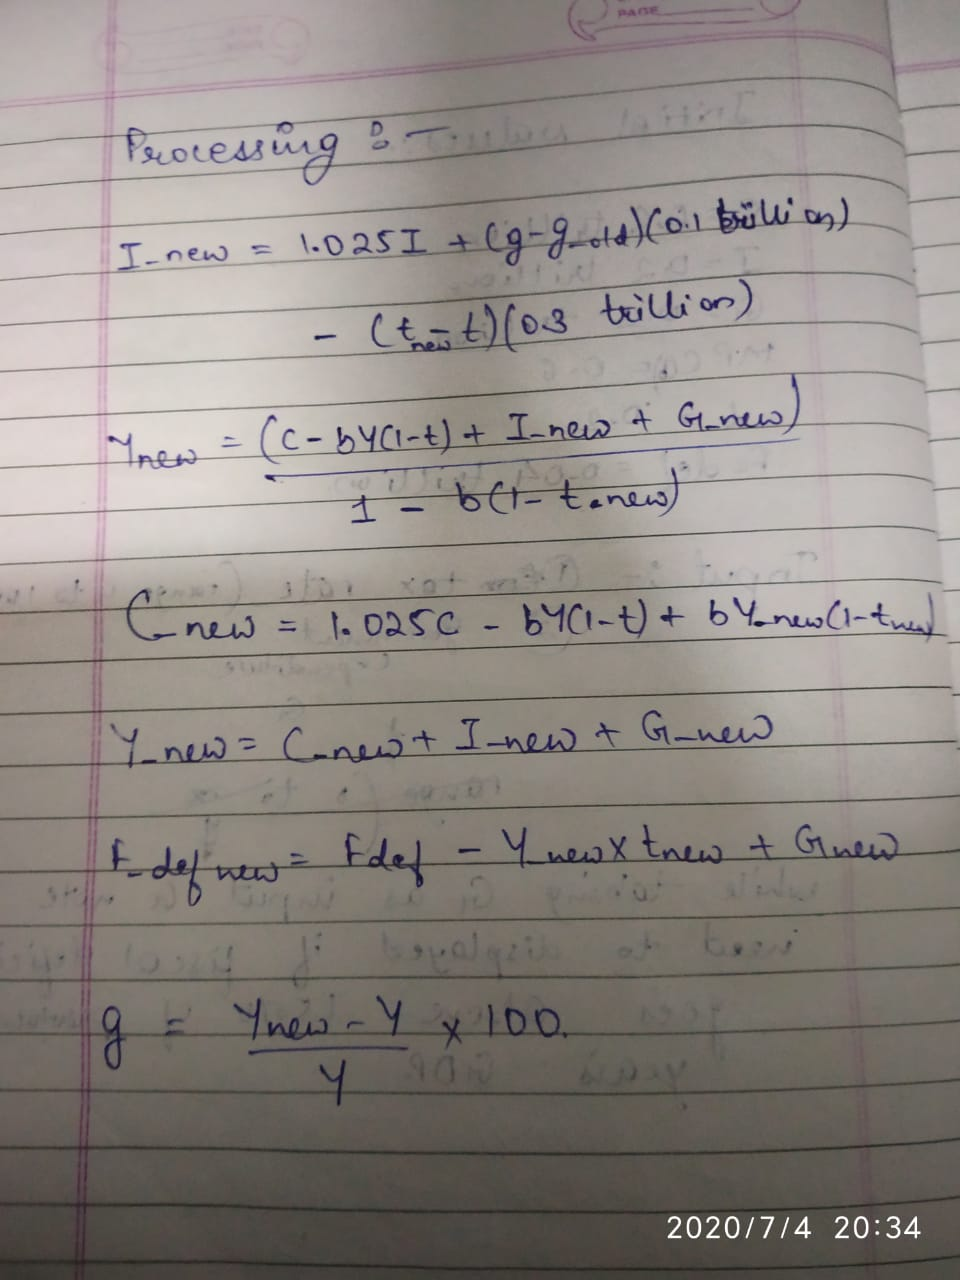 PAGE
Processing :-
I_new = 1.025I + (g-g_old)(0.1 trillion)
- (t_new - t)(0.3 trillion)
Ynew = (C - bY(1-t) + I_new + G_new)
1 - b(1- t_new)
C_new = 1.025C - bY(1-t) + bY_new(1-tnew)
Y_new = C_new + I_new + G_new
F_def new = Fdef - Y_new x tnew + Gnew
g = Ynew - Y x 100.
Y
2020/7/4 20:34